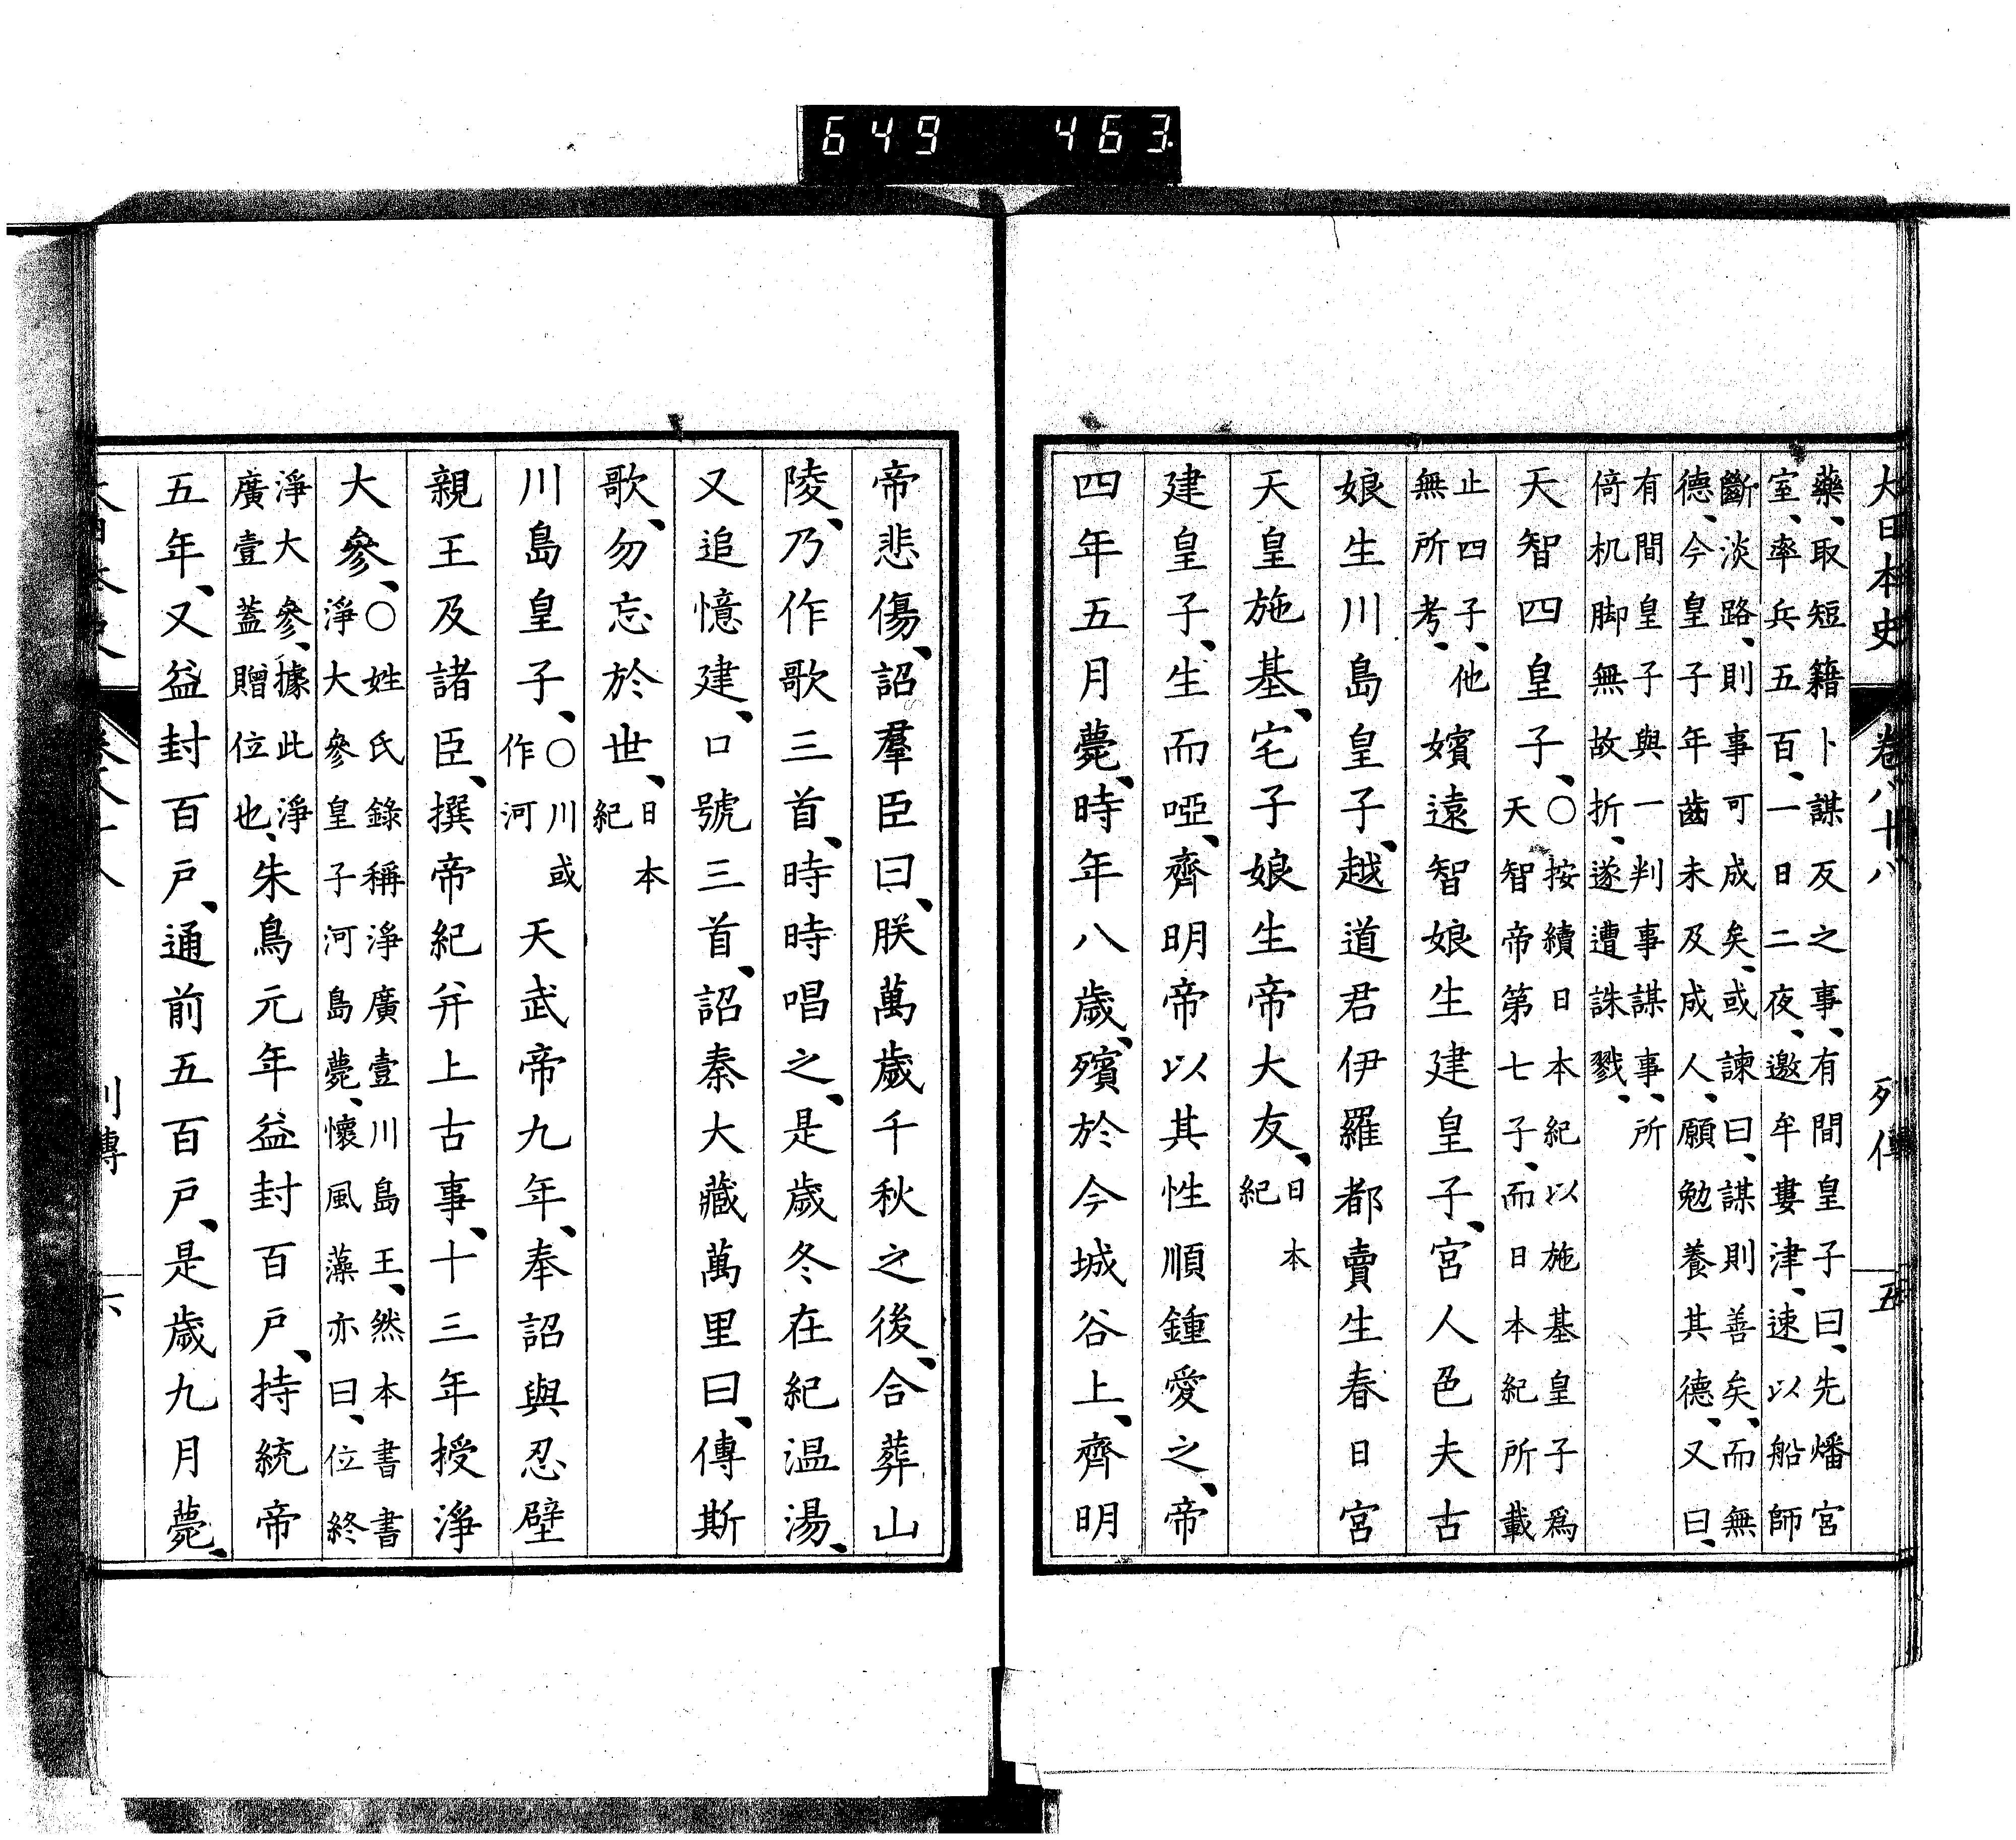 649 463
大日本史 卷八十八 列傳 五
藥、取短籍卜謀反之事、有間皇子曰、先燔宮
室、率兵五百、一日二夜、邀牟婁津、速以船師
斷淡路、則事可成矣、或諫曰、謀則善矣、而無
德、今皇子年齒未及成人、願勉養其德、又曰、
有間皇子與一判事謀事、所
倚机脚無故折、遂遭誅戮、
天智四皇子、
〇按續日本紀以施基皇子爲
天智帝第七子、而日本紀所載
止四子、他
無所考、
嬪遠智娘生建皇子、宮人色夫古
娘生川島皇子、越道君伊羅都賣生春日宮
天皇施基、宅子娘生帝大友、
日本
紀
建皇子、生而啞、齊明帝以其性順鍾愛之、帝
四年五月薨、時年八歲、殯於今城谷上、齊明
帝悲傷、詔羣臣曰、朕萬歲千秋之後、合葬山
陵、乃作歌三首、時時唱之、是歲冬在紀温湯、
又追憶建、口號三首、詔秦大藏萬里曰、傳斯
歌、勿忘於世、
日本
紀
川島皇子、
〇川或
作河
天武帝九年、奉詔與忍壁
親王及諸臣、撰帝紀幷上古事、十三年授淨
大參、
〇姓氏錄稱淨廣壹川島王、然本書書
淨大參皇子河島薨、懷風藻亦曰、位終
淨大參、據此淨
廣壹蓋贈位也、
朱鳥元年益封百戶、持統帝
五年、又益封百戶、通前五百戶、是歲九月薨、